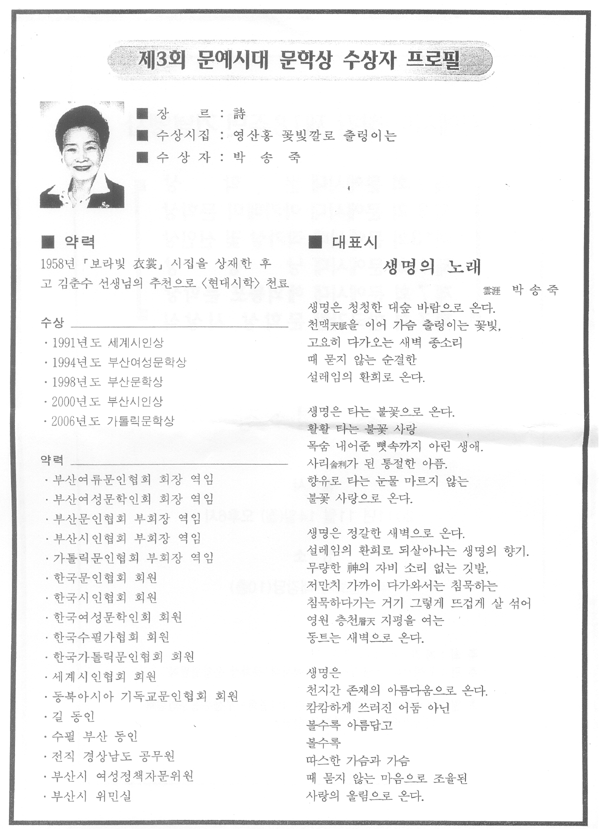 제3회 문예시대 문학상 수상자 프로필
■ 장 르 : 詩
■ 수상시집 : 영산홍 꽃빛깔로 출렁이는
■ 수 상 자 : 박 송 죽
■ 약력
1958년 「보라빛 衣裳」 시집을 상재한 후
고 김춘수 선생님의 추천으로 〈현대시학〉 천료
수상
· 1991년도 세계시인상
· 1994년도 부산여성문학상
· 1998년도 부산문학상
· 2000년도 부산시인상
· 2006년도 가톨릭문학상
약력
· 부산여류문인협회 회장 역임
· 부산여성문학인회 회장 역임
· 부산문인협회 부회장 역임
· 부산시인협회 부회장 역임
· 가톨릭문인협회 부회장 역임
· 한국문인협회 회원
· 한국시인협회 회원
· 한국여성문학인회 회원
· 한국수필가협회 회원
· 한국가톨릭문인협회 회원
· 세계시인협회 회원
· 동북아시아 기독교문인협회 회원
· 길 동인
· 수필 부산 동인
· 전직 경상남도 공무원
· 부산시 여성정책자문위원
· 부산시 위민실
■ 대표시
생명의 노래
박 송 죽
생명은 청청한 대숲 바람으로 온다.
천맥天脈을 이어 가슴 출렁이는 꽃빛,
고요히 다가오는 새벽 종소리
때 묻지 않는 순결한
설레임의 환희로 온다.
생명은 타는 불꽃으로 온다.
활활 타는 불꽃 사랑
목숨 내어준 뼛속까지 아린 생애.
사리舍利가 된 통절한 아픔.
향유로 타는 눈물 마르지 않는
불꽃 사랑으로 온다.
생명은 정갈한 새벽으로 온다.
설레임의 환희로 되살아나는 생명의 향기.
무량한 神의 자비 소리 없는 깃발,
저만치 가까이 다가와서는 침묵하는
침묵하다가는 거기 그렇게 뜨겁게 살 섞어
영원 층천層天 지평을 여는
동트는 새벽으로 온다.
생명은
천지간 존재의 아름다움으로 온다.
캄캄하게 쓰러진 어둠 아닌
볼수록 아름답고
볼수록
따스한 가슴과 가슴
때 묻지 않는 마음으로 조율된
사랑의 울림으로 온다.